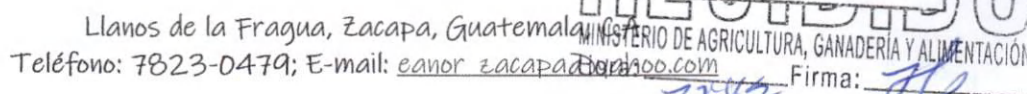 RECIBIDO
Llanos de la Fragua, Zacapa, Guatemala
MINISTERIO DE AGRICULTURA, GANADERÍA Y ALIMENTACIÓN
Teléfono: 7823-0479; E-mail: eanor_zacapa@yahoo.com
Firma: